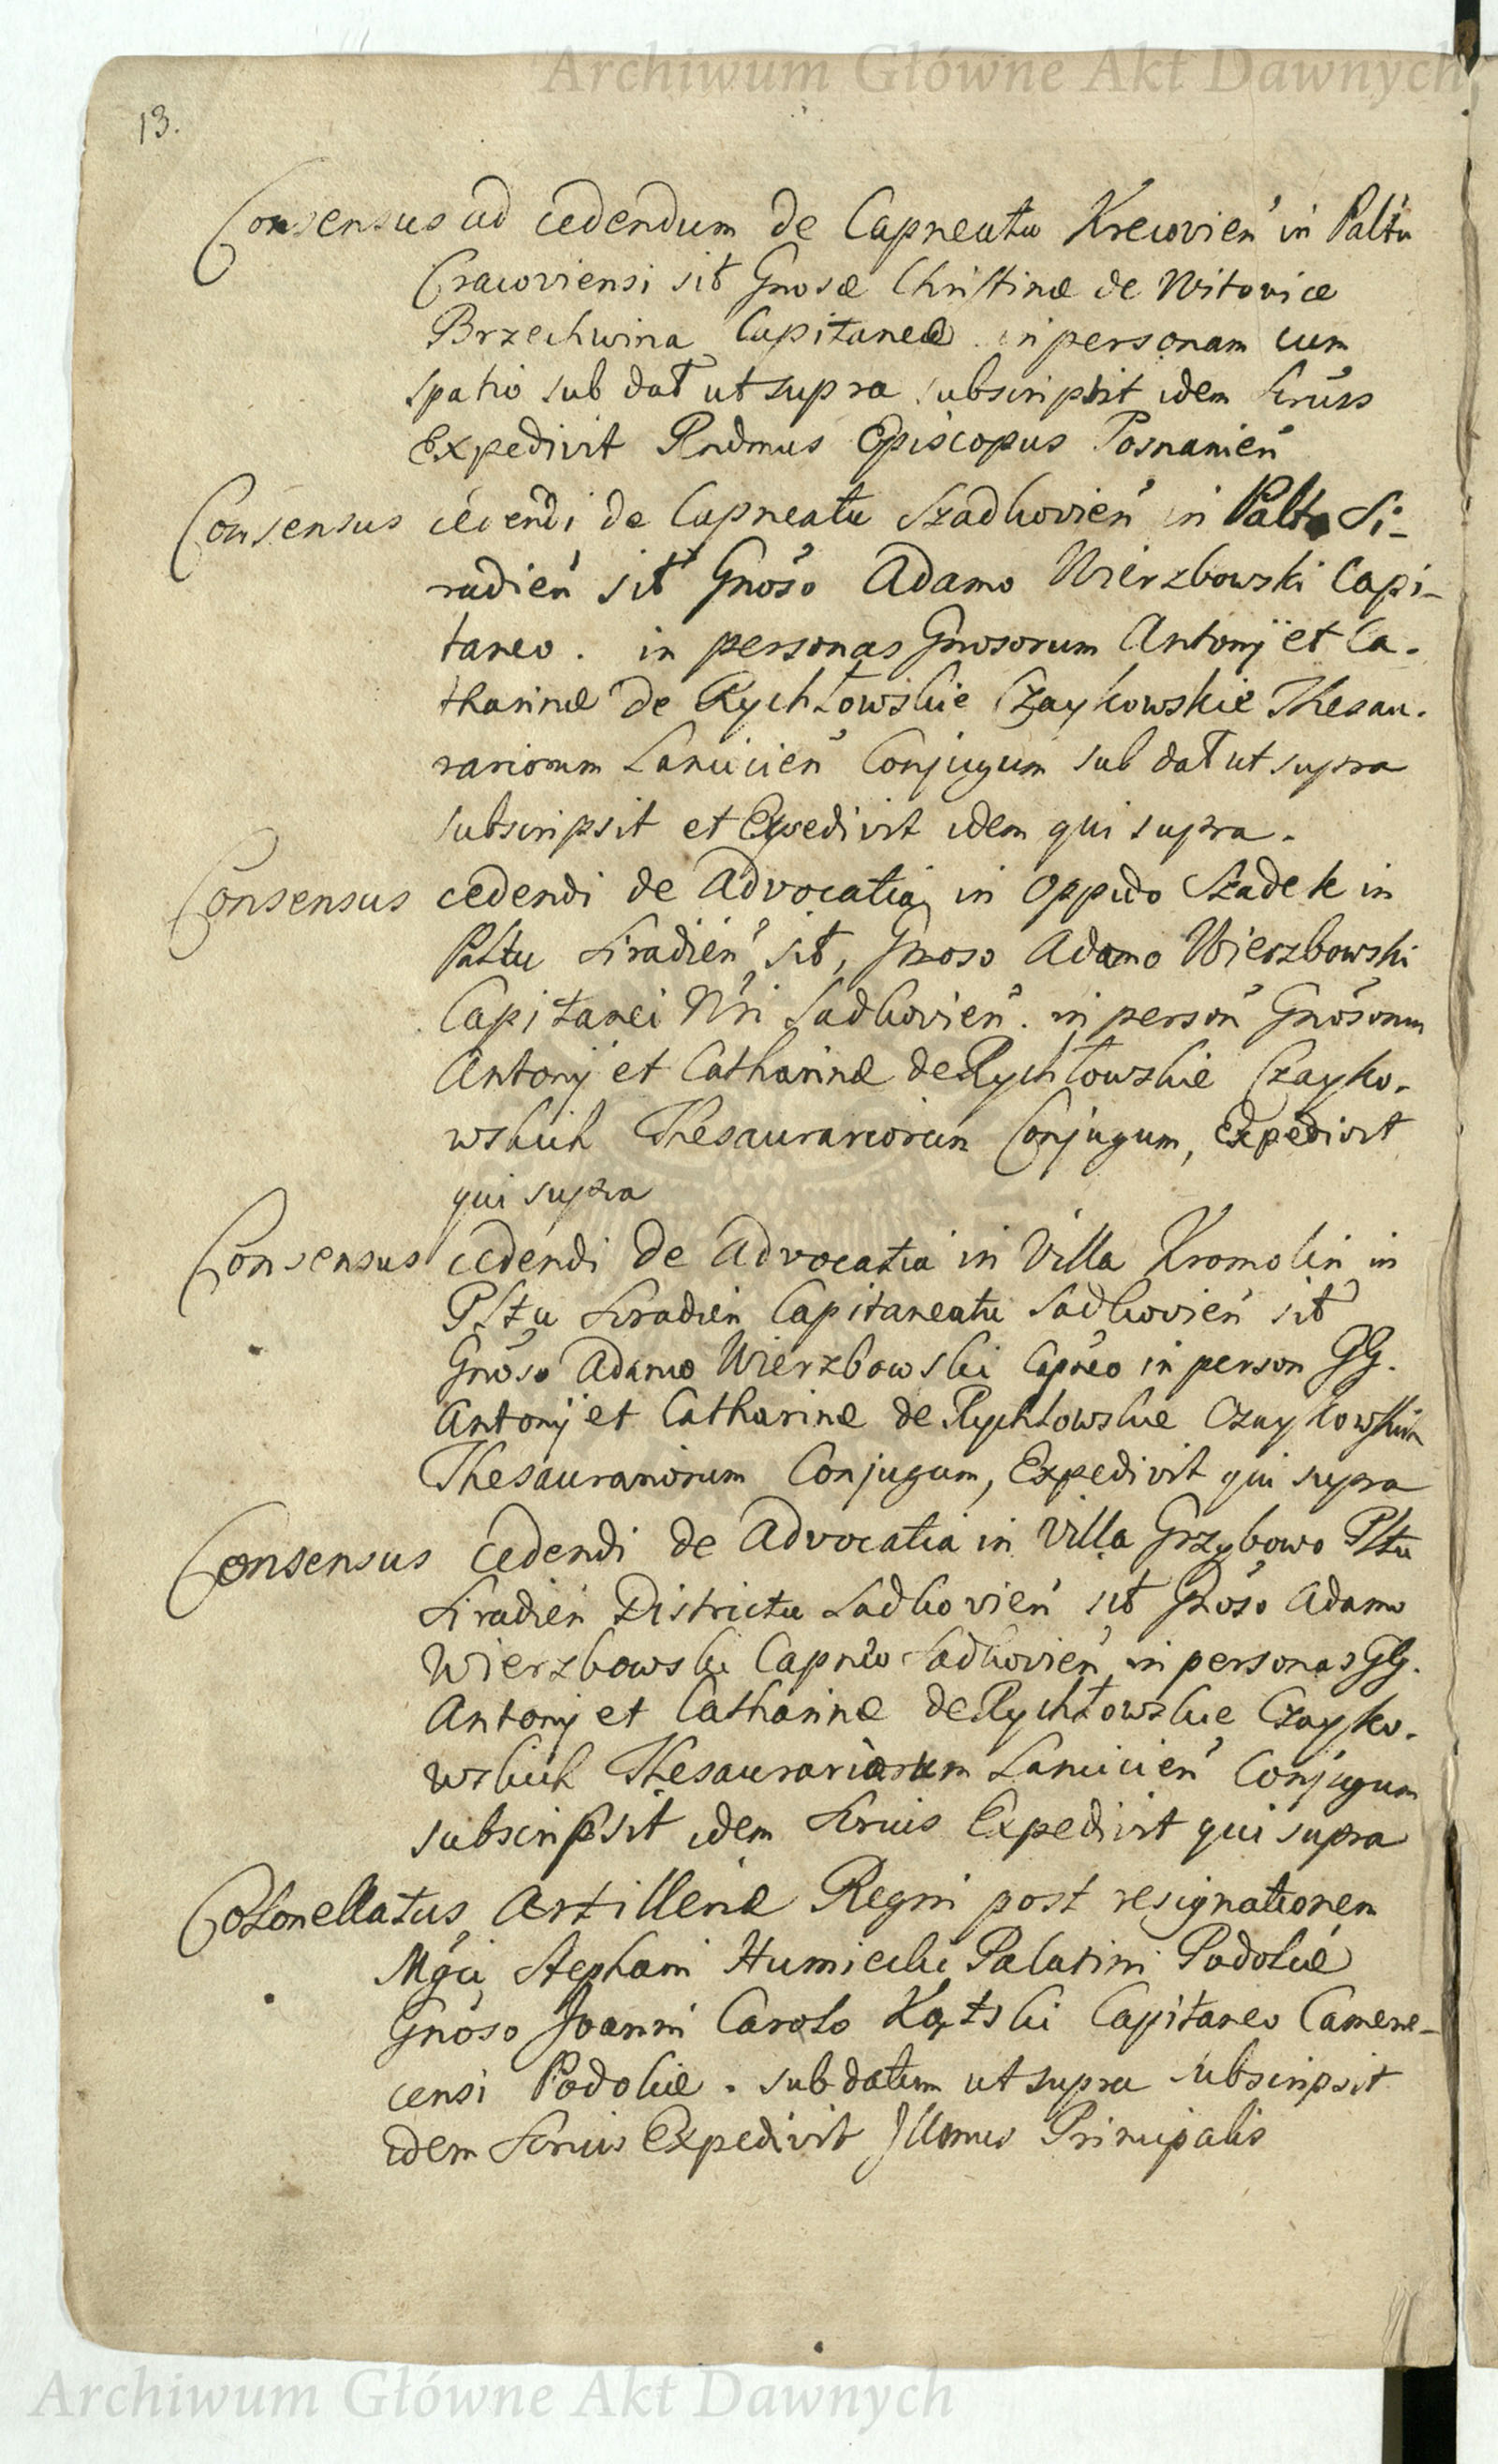 Archiwum Główne Akt Dawnych
13.
Consensus ad cedendum de Capneatu Krecovień in Paltu
Cracoviensi sit Gnosæ Christinæ de Witovice
Brzechwina Capitaneæ in personam cum
spatio sub dat ut supra subscripsit idem Srńss
Expedivit Rndmus Episcopus Posnanień
Consensus cedendi de Capneatu Szadkovień in Paltu Si-
radień sit Gnoso Adamo Wierzbowski Capi-
taneo. in personas Gnosorum Antonij et Ca-
tharinæ de Rychłowskie Czaykowskie Thesau-
rariorum Lancicień Conjugum sub dat ut supra
subscripsit et Expedivit idem qui supra.
Consensus cedendi de Advocatia in Oppido Szadek in
Paltu Siradień sit, Gnoso Adamo Wierzbowski
Capitanei Nri Sadkovień. in person Gnosorum
Antonij et Catharinæ de Rychłowskie Czayko-
wskich Thesaurariorum Conjugum, Expedivit
qui supra
Consensus cedendi de Advocatia in Villa Kromolin in
Pltu Siradien Capitaneatu Sadkovień sit
Gnoso Adamo Wierzbowski Capneo in person GG.
Antonij et Catharinæ de Rychłowskie Czaykowskich
Thesaurariorum Conjugum, Expedivit qui supra
Consensus cedendi de Advocatia in Villa Grzybowo Pltu
Siradień Districtu Sadkovień sit Gnoso Adamo
Wierzbowski Capneo Sadkovień in personas GG.
Antonij et Catharinæ de Rychłowskie Czayko-
wskich Thesaurariorum Lancicień Conjugum
subscripsit idem Srnis Expedivit qui supra
Colonellatus Artilleriæ Regni post resignationem
Mgci Stephani Humiecki Palatini Podoliæ
Gnoso Joanni Carolo Kątski Capitaneo Camene-
censi Podoliæ. sub datum ut supra subscripsit
idem Srnis Expedivit Illmus Principalis
Archiwum Główne Akt Dawnych